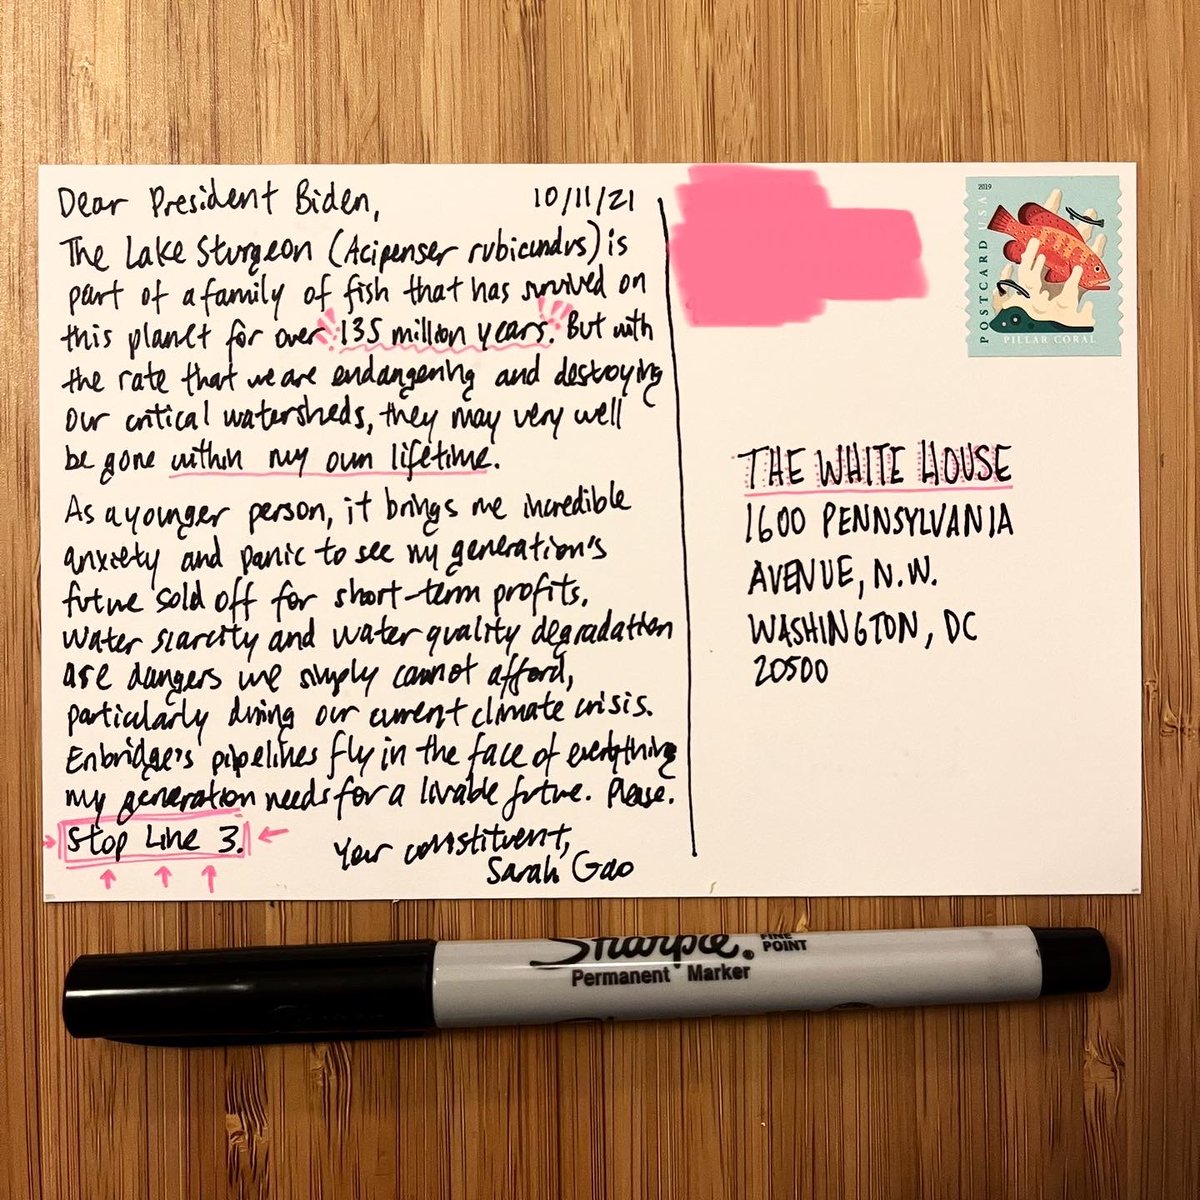 Dear President Biden,
10/11/21
The Lake Sturgeon (Acipenser rubicundus) is
part of a family of fish that has survived on
this planet for over 135 million years. But with
the rate that we are endangering and destroying
our critical watersheds, they may very well
be gone within my own lifetime.
As a younger person, it brings me incredible
anxiety and panic to see my generation's
future sold off for short-term profits.
Water scarcity and water quality degradation
are dangers we simply cannot afford,
particularly during our current climate crisis.
Enbridge's pipelines fly in the face of everything
my generation needs for a livable future. Please.
Stop Line 3.
Your constituent,
Sarah Gao
2019
POSTCARD USA
PILLAR CORAL
THE WHITE HOUSE
1600 PENNSYLVANIA
AVENUE, N.W.
WASHINGTON, DC
20500
Sharpie®
FINE
POINT
Permanent Marker